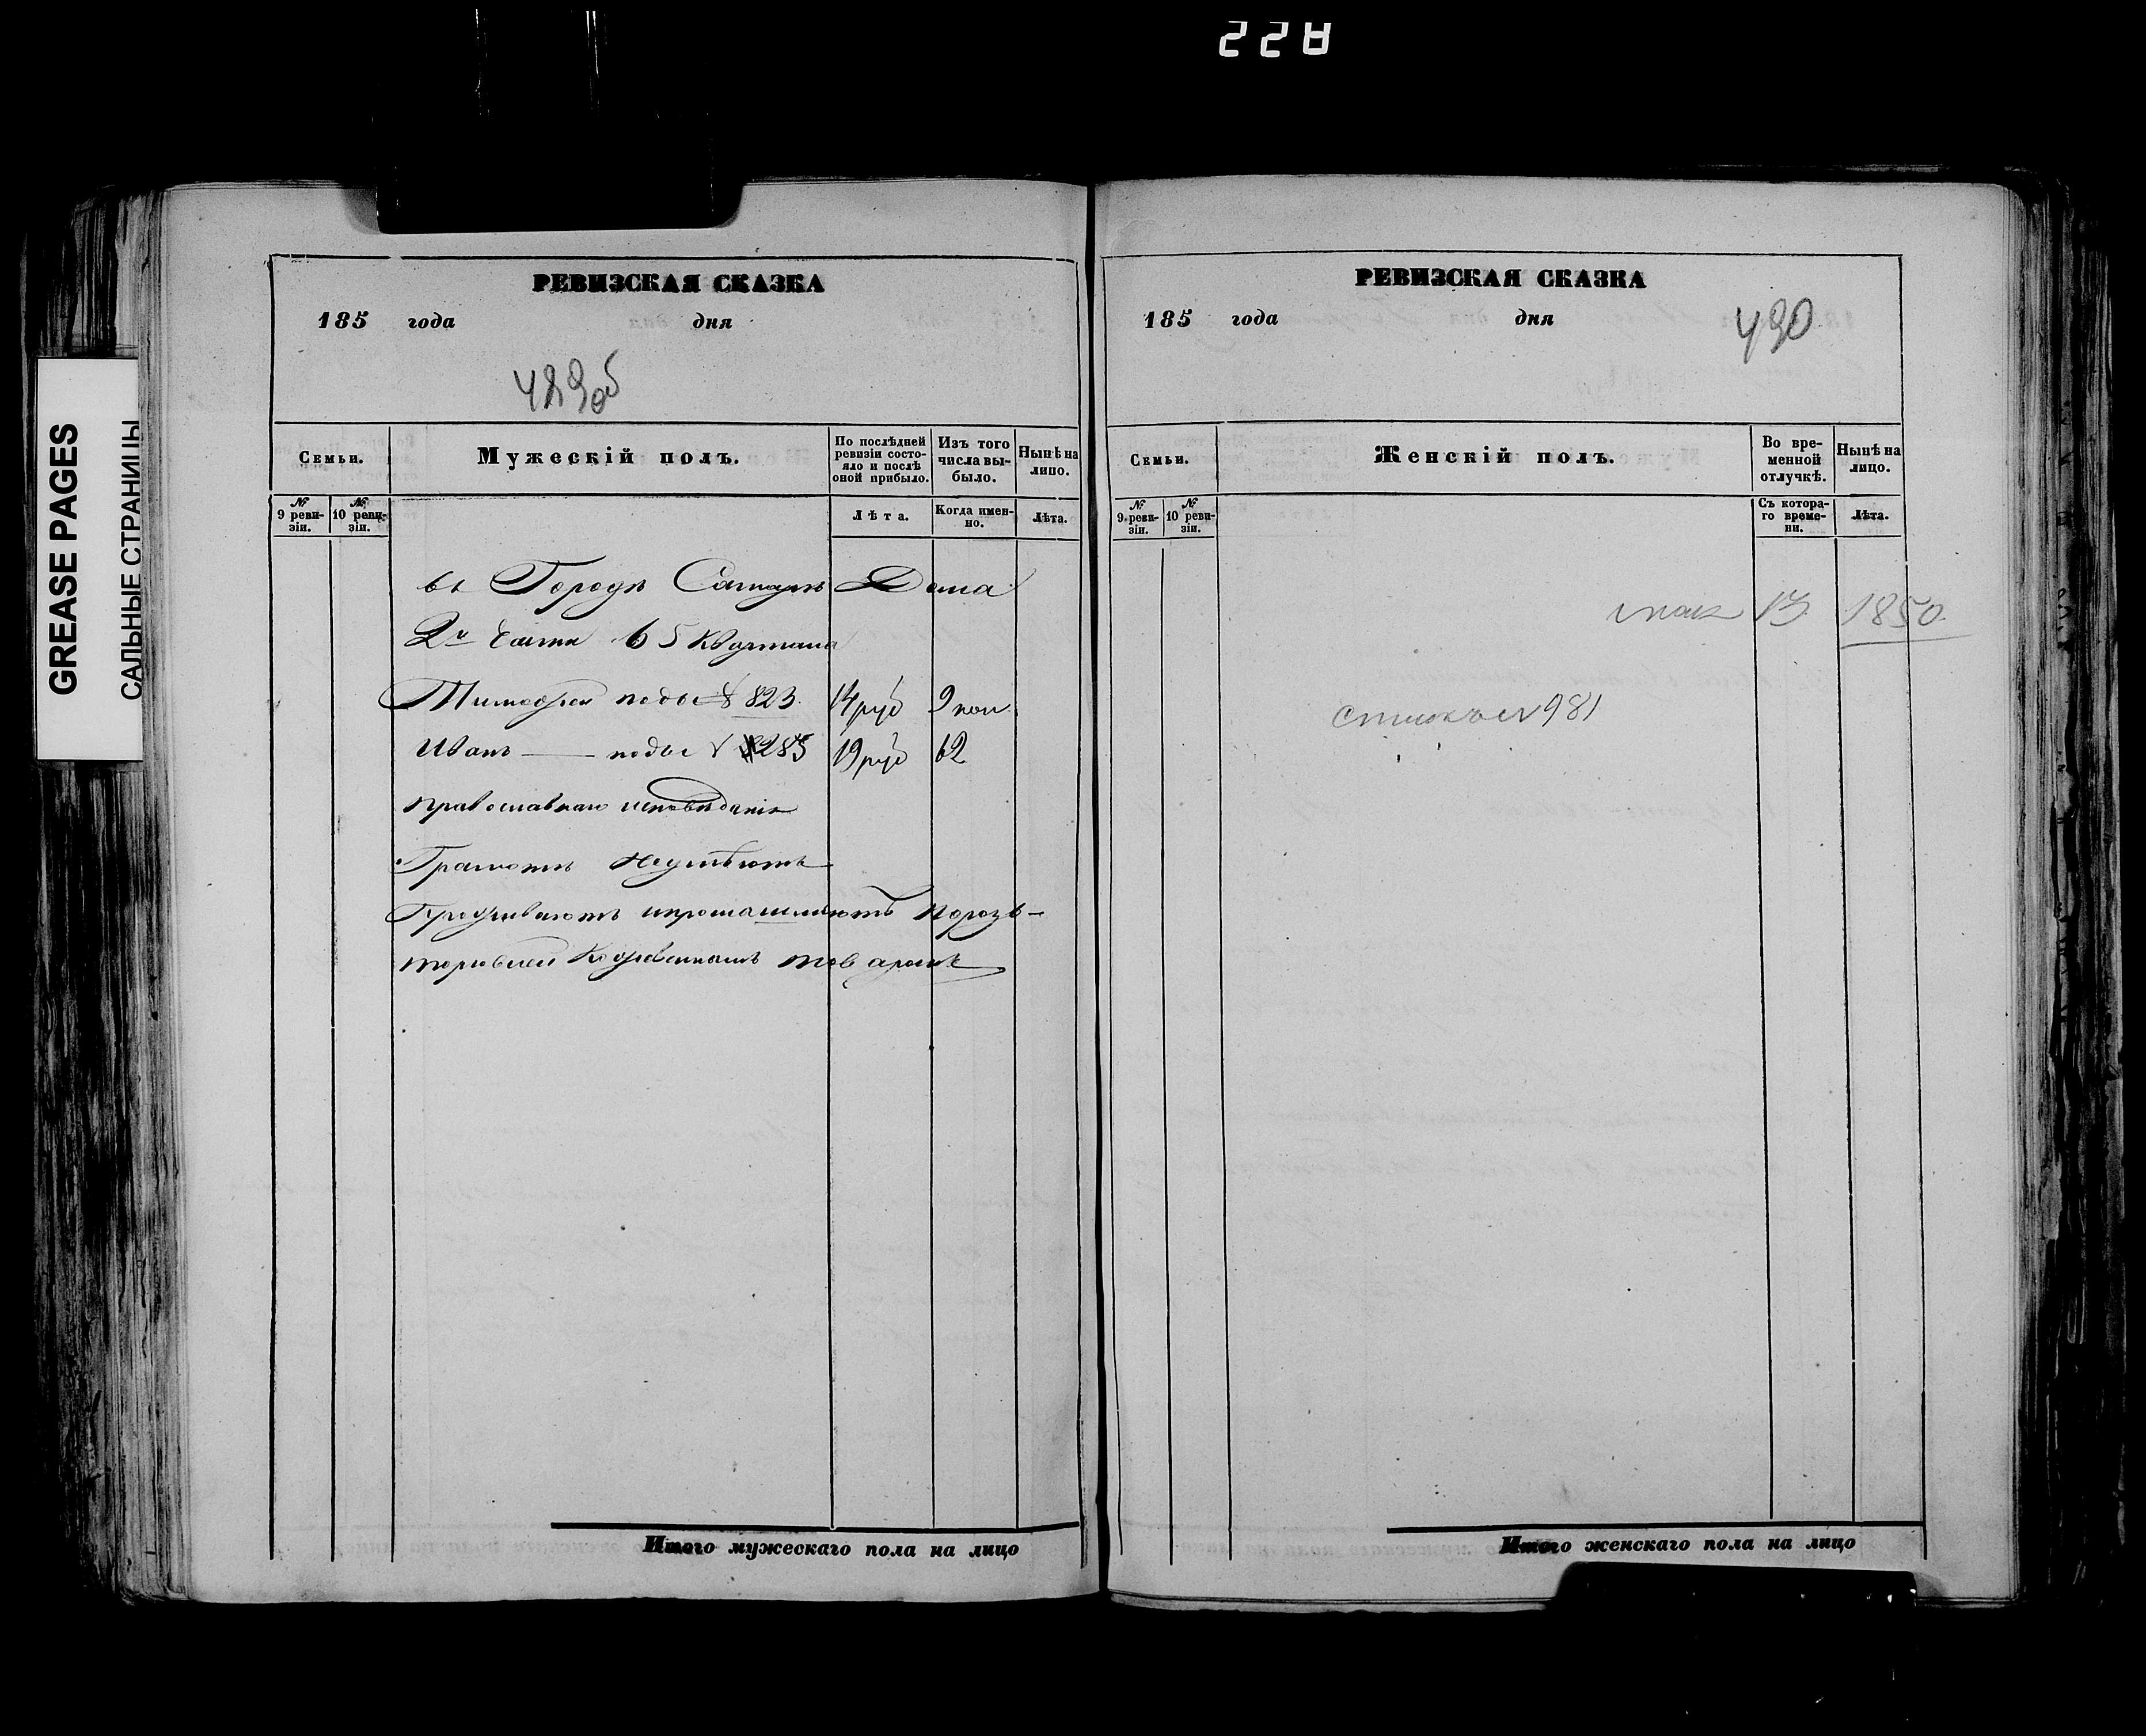 228
GREASE PAGES
САЛЬНЫЕ СТРАНИЦЫ
РЕВИЗСКАЯ СКАЗКА
185 года дня
489об
Семьи.
Мужескій полъ.
По послѣдней ревизіи состояло и послѣ оной прибыло.
Изъ того числа выбыло.
Нынѣ на лицо.
№ 9 ревизіи.
№ 10 ревизіи.
Лѣта.
Когда именно.
Лѣта.
въ Городѣ Самарѣ Дома
2й Части 65 Квартала
Тимофея подъ № 823. 14 руб 9 коп.
Иванъ — подъ № 285 19 руб 62
Православнаго исповѣданія
Грамотѣ Неумѣютъ
товаромъ
Итого мужескаго пола на лицо
РЕВИЗСКАЯ СКАЗКА
185 года дня
490
Семьи.
Женскій полъ.
Во временной отлучкѣ.
Нынѣ на лицо.
№ 9 ревизіи.
№ 10 ревизіи.
Съ котораго времени.
Лѣта.
1850.
981
Итого женскаго пола на лицо